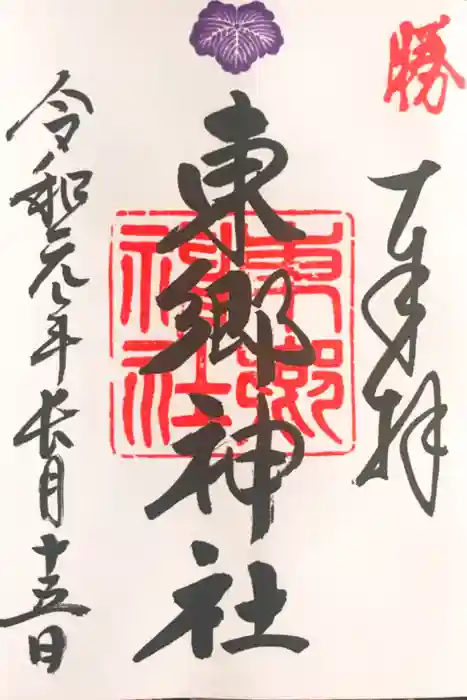 勝
奉拝
東郷神社
東郷神社
令和元年長月十五日